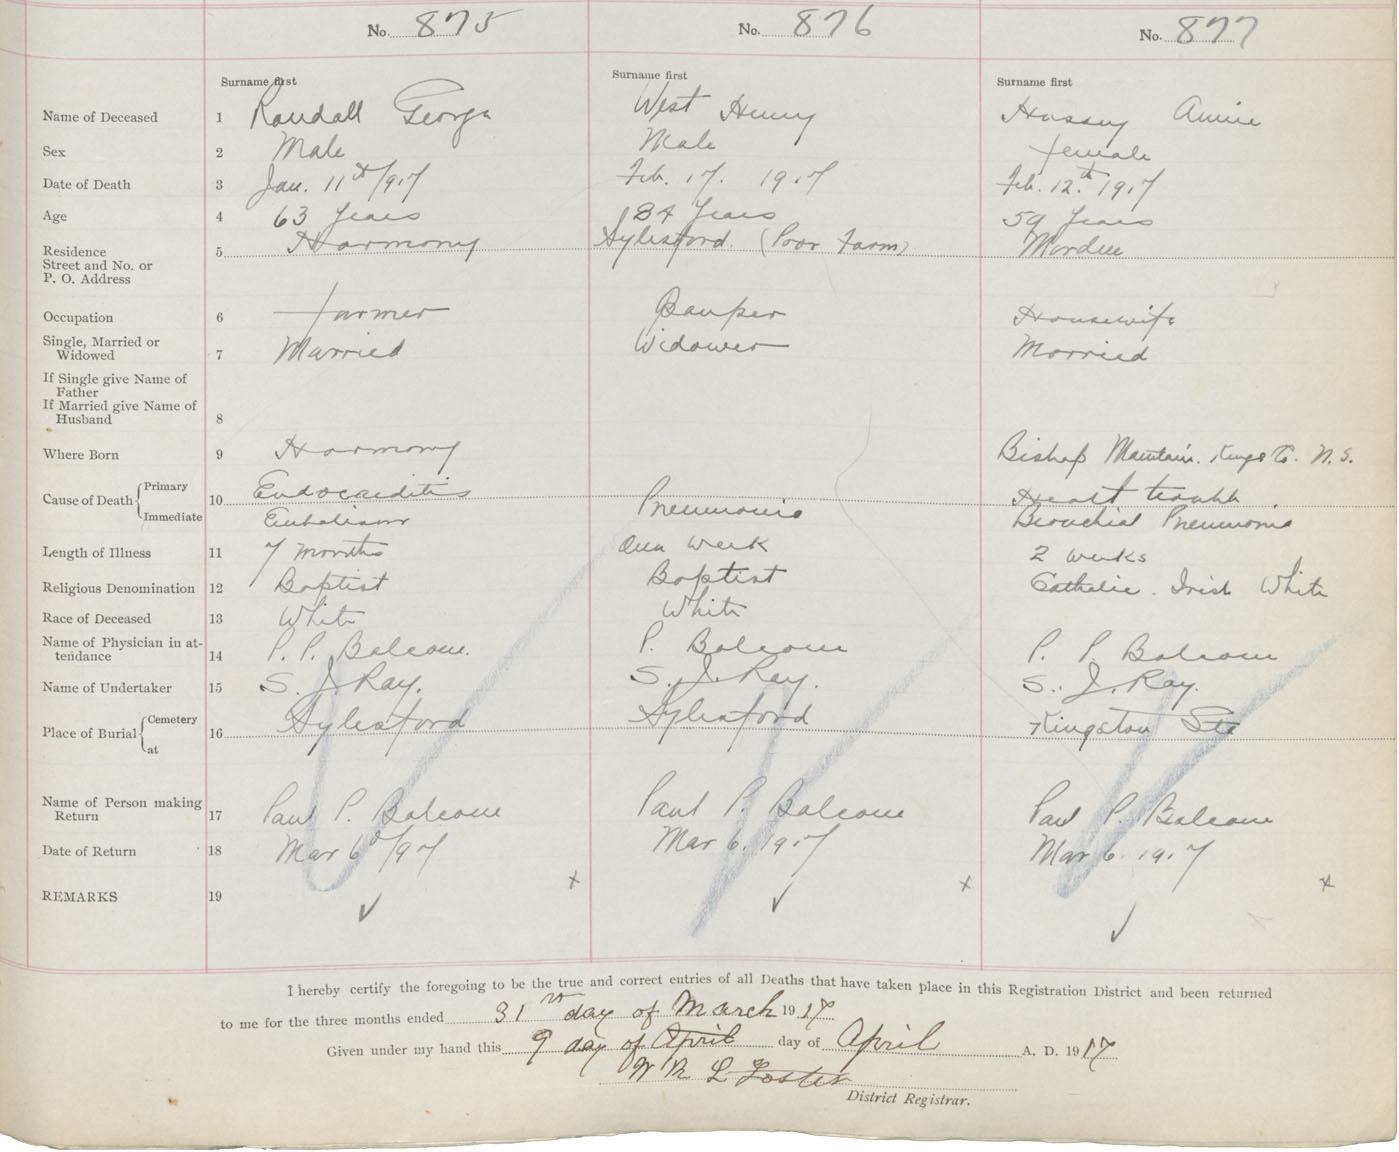 No. 875 No. 876 No. 877
Surname first Surname first Surname first
Name of Deceased 1 Randall George West Henry Hussey Annie
Sex 2 Male Male Female
Date of Death 3 Jan. 11th 1917 Feb. 17. 1917 Feb. 12.th 1917
Age 4 63 Years 84 Years 59 Years
Residence 5 Harmony Aylesford (Poor Farm) Morden
Street and No. or
P. O. Address
Occupation 6 Farmer Pauper Housewife
Single, Married or
Widowed 7 Married Widower Married
If Single give Name of
Father
If Married give Name of
Husband 8
Where Born 9 Harmony Bishop Mountain. Kings Co. N. S.
Cause of Death Primary 10 Endocarditis Heart trouble
Immediate Embolism Pneumonia Bronchial Pneumonia
Length of Illness 11 7 months One week 2 weeks
Religious Denomination 12 Baptist Baptist Catholic. Irish White
Race of Deceased 13 White White
Name of Physician in at-
tendance 14 P. P. Balcom. P. Balcom P. P. Balcom
Name of Undertaker 15 S. J. Ray. S. J. Ray. S. J. Ray.
Place of Burial Cemetery 16 Aylesford Aylesford Kingston Sta
at
Name of Person making
Return 17 Paul P. Balcom Paul P. Balcom Paul P. Balcom
Date of Return 18 Mar 6th 1917 Mar 6. 1917 Mar 6. 1917
REMARKS 19
I hereby certify the foregoing to be the true and correct entries of all Deaths that have taken place in this Registration District and been returned
to me for the three months ended 31st day of March 1917
Given under my hand this 9 day of April day of April A. D. 1917
W R L Foster
District Registrar.